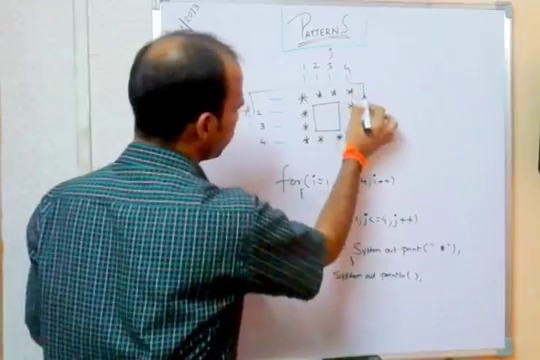 PATTERNS
j
1 2 3 4
* * * *
2 — *
3 — *
4 — * * *
for(i=1, 4, i++)
{
1, j<=4, j++)
System out print("*"),
}
System out println(),